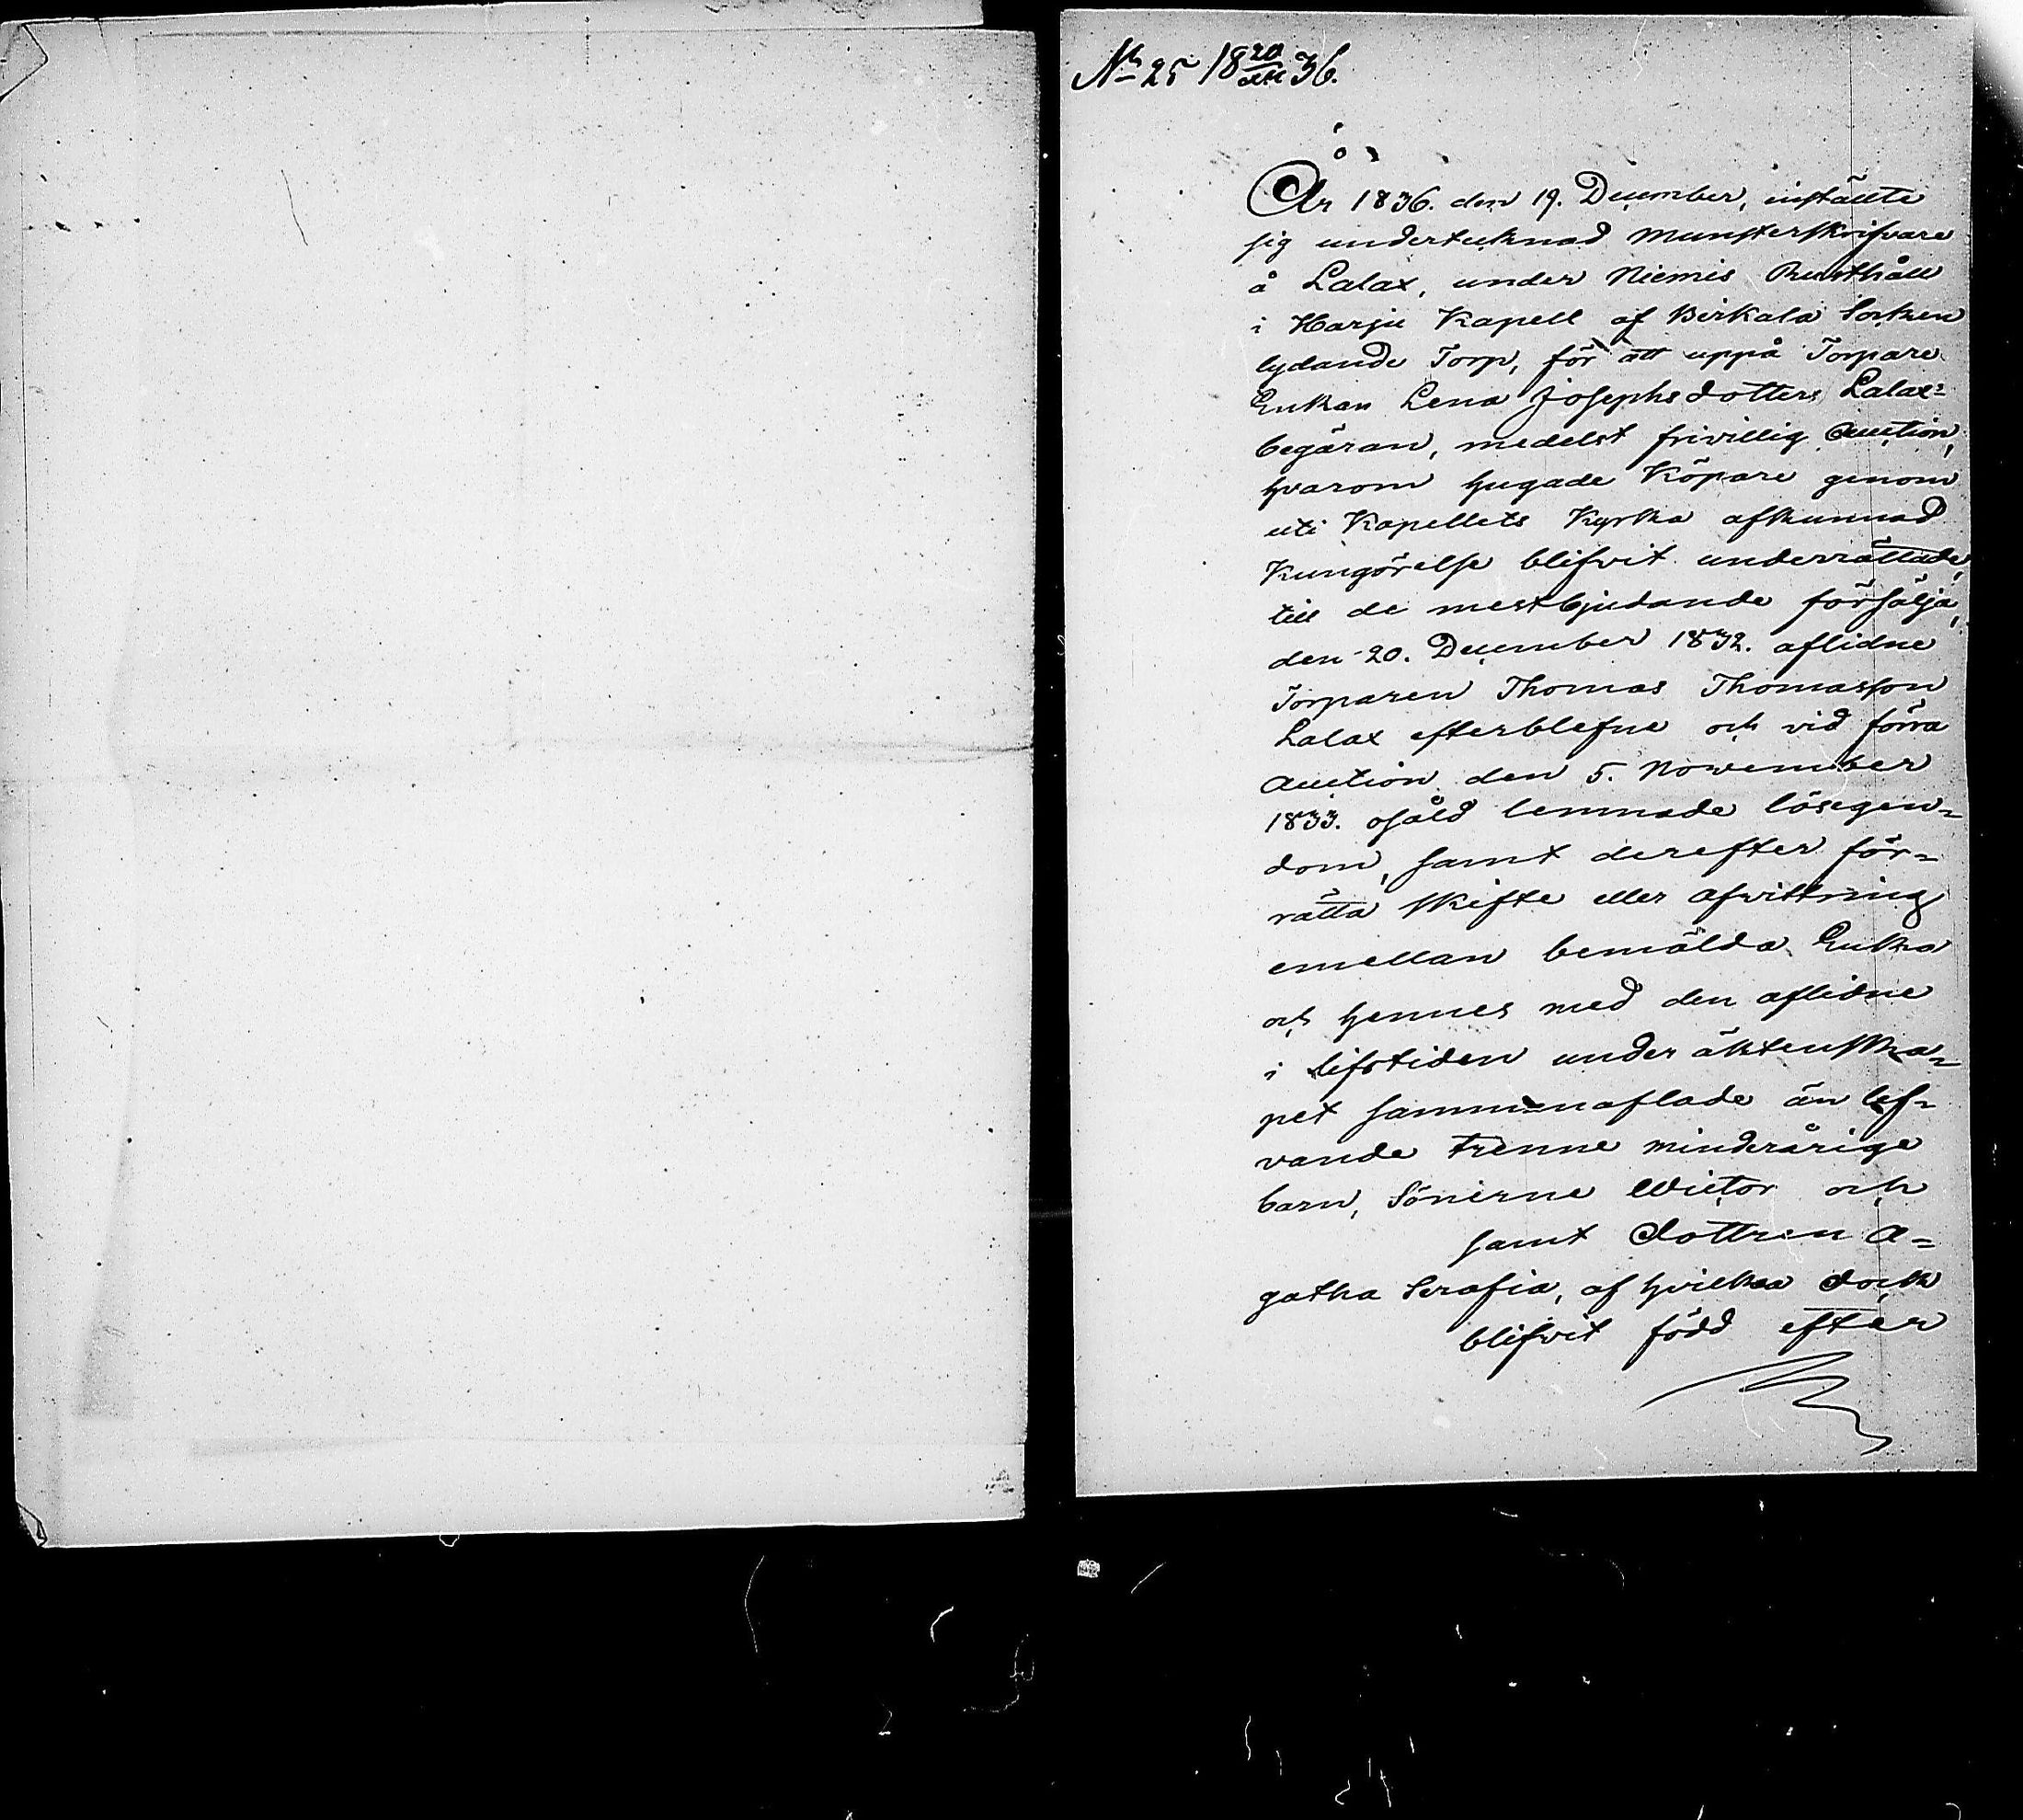 No 25 18 20/XII 36.
År 1836. den 19. December, instälte
sig undertecknad Munsterskrifvare
å Lalax, under Niemis Rusthåll
i Harju Kapell af Birkala Socken
lydande Torp, för att uppå Torpare
Enkan Lena Josephsdotters Lalax=
begäran, medelst frivillig Auction,
hvarom hugade Köpare genom
uti Kapellets Kyrka afkunnad
Kungörelse blifvit underrättade,
till de mestbjudande försälja,
den 20. December 1832. aflidne
Torparen Thomas Thomasson
Lalax efterblefne och vid förra
Auction den 5. November
1833. osåld lemnade lösegen=
dom, samt derefter för=
rätta skifte eller afwittring
emellan bemälda Enka
och hennes med den aflidne
i lifstiden under äktenska=
pet sammanaflade än lef=
vande trenne minderårige
barn, Sönerne Wictor och
samt dottren A=
gatha Serafia, af hvilka dock
blifvit född efter